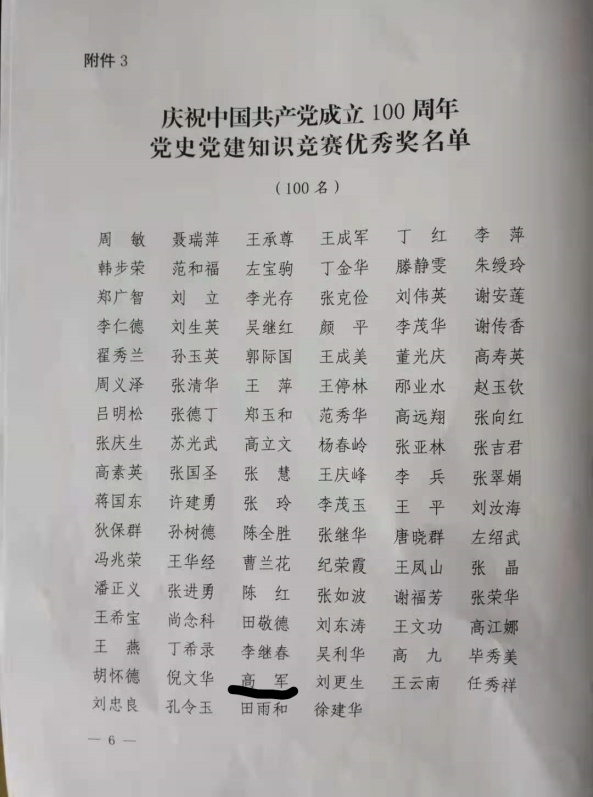 附件 3
庆祝中国共产党成立 100 周年
党史党建知识竞赛优秀奖名单
（100 名）
周 敏 聂瑞萍 王承尊 王成军 丁 红 李 萍
韩步荣 范和福 左宝驹 丁金华 滕静雯 朱绶玲
郑广智 刘 立 李光存 张克俭 刘伟英 谢安莲
李仁德 刘生英 吴继红 颜 平 李茂华 谢传香
翟秀兰 孙玉英 郭际国 王成美 董光庆 高寿英
周义泽 张清华 王 萍 王停林 邴业水 赵玉钦
吕明松 张德丁 郑玉和 范秀华 高远翔 张向红
张庆生 苏光武 高立文 杨春岭 张亚林 张吉君
高素英 张国圣 张 慧 王庆峰 李 兵 张翠娟
蒋国东 许建勇 张 玲 李茂玉 王 平 刘汝海
狄保群 孙树德 陈全胜 张继华 唐晓群 左绍武
冯兆荣 王华经 曹兰花 纪荣霞 王凤山 张 晶
潘正义 张进勇 陈 红 张如波 谢福芳 张荣华
王希宝 尚念科 田敬德 刘东涛 王文功 高江娜
王 燕 丁希录 李继春 吴利华 高 九 毕秀美
胡怀德 倪文华 高 军 刘更生 王云南 任秀祥
刘忠良 孔令玉 田雨和 徐建华
— 6 —